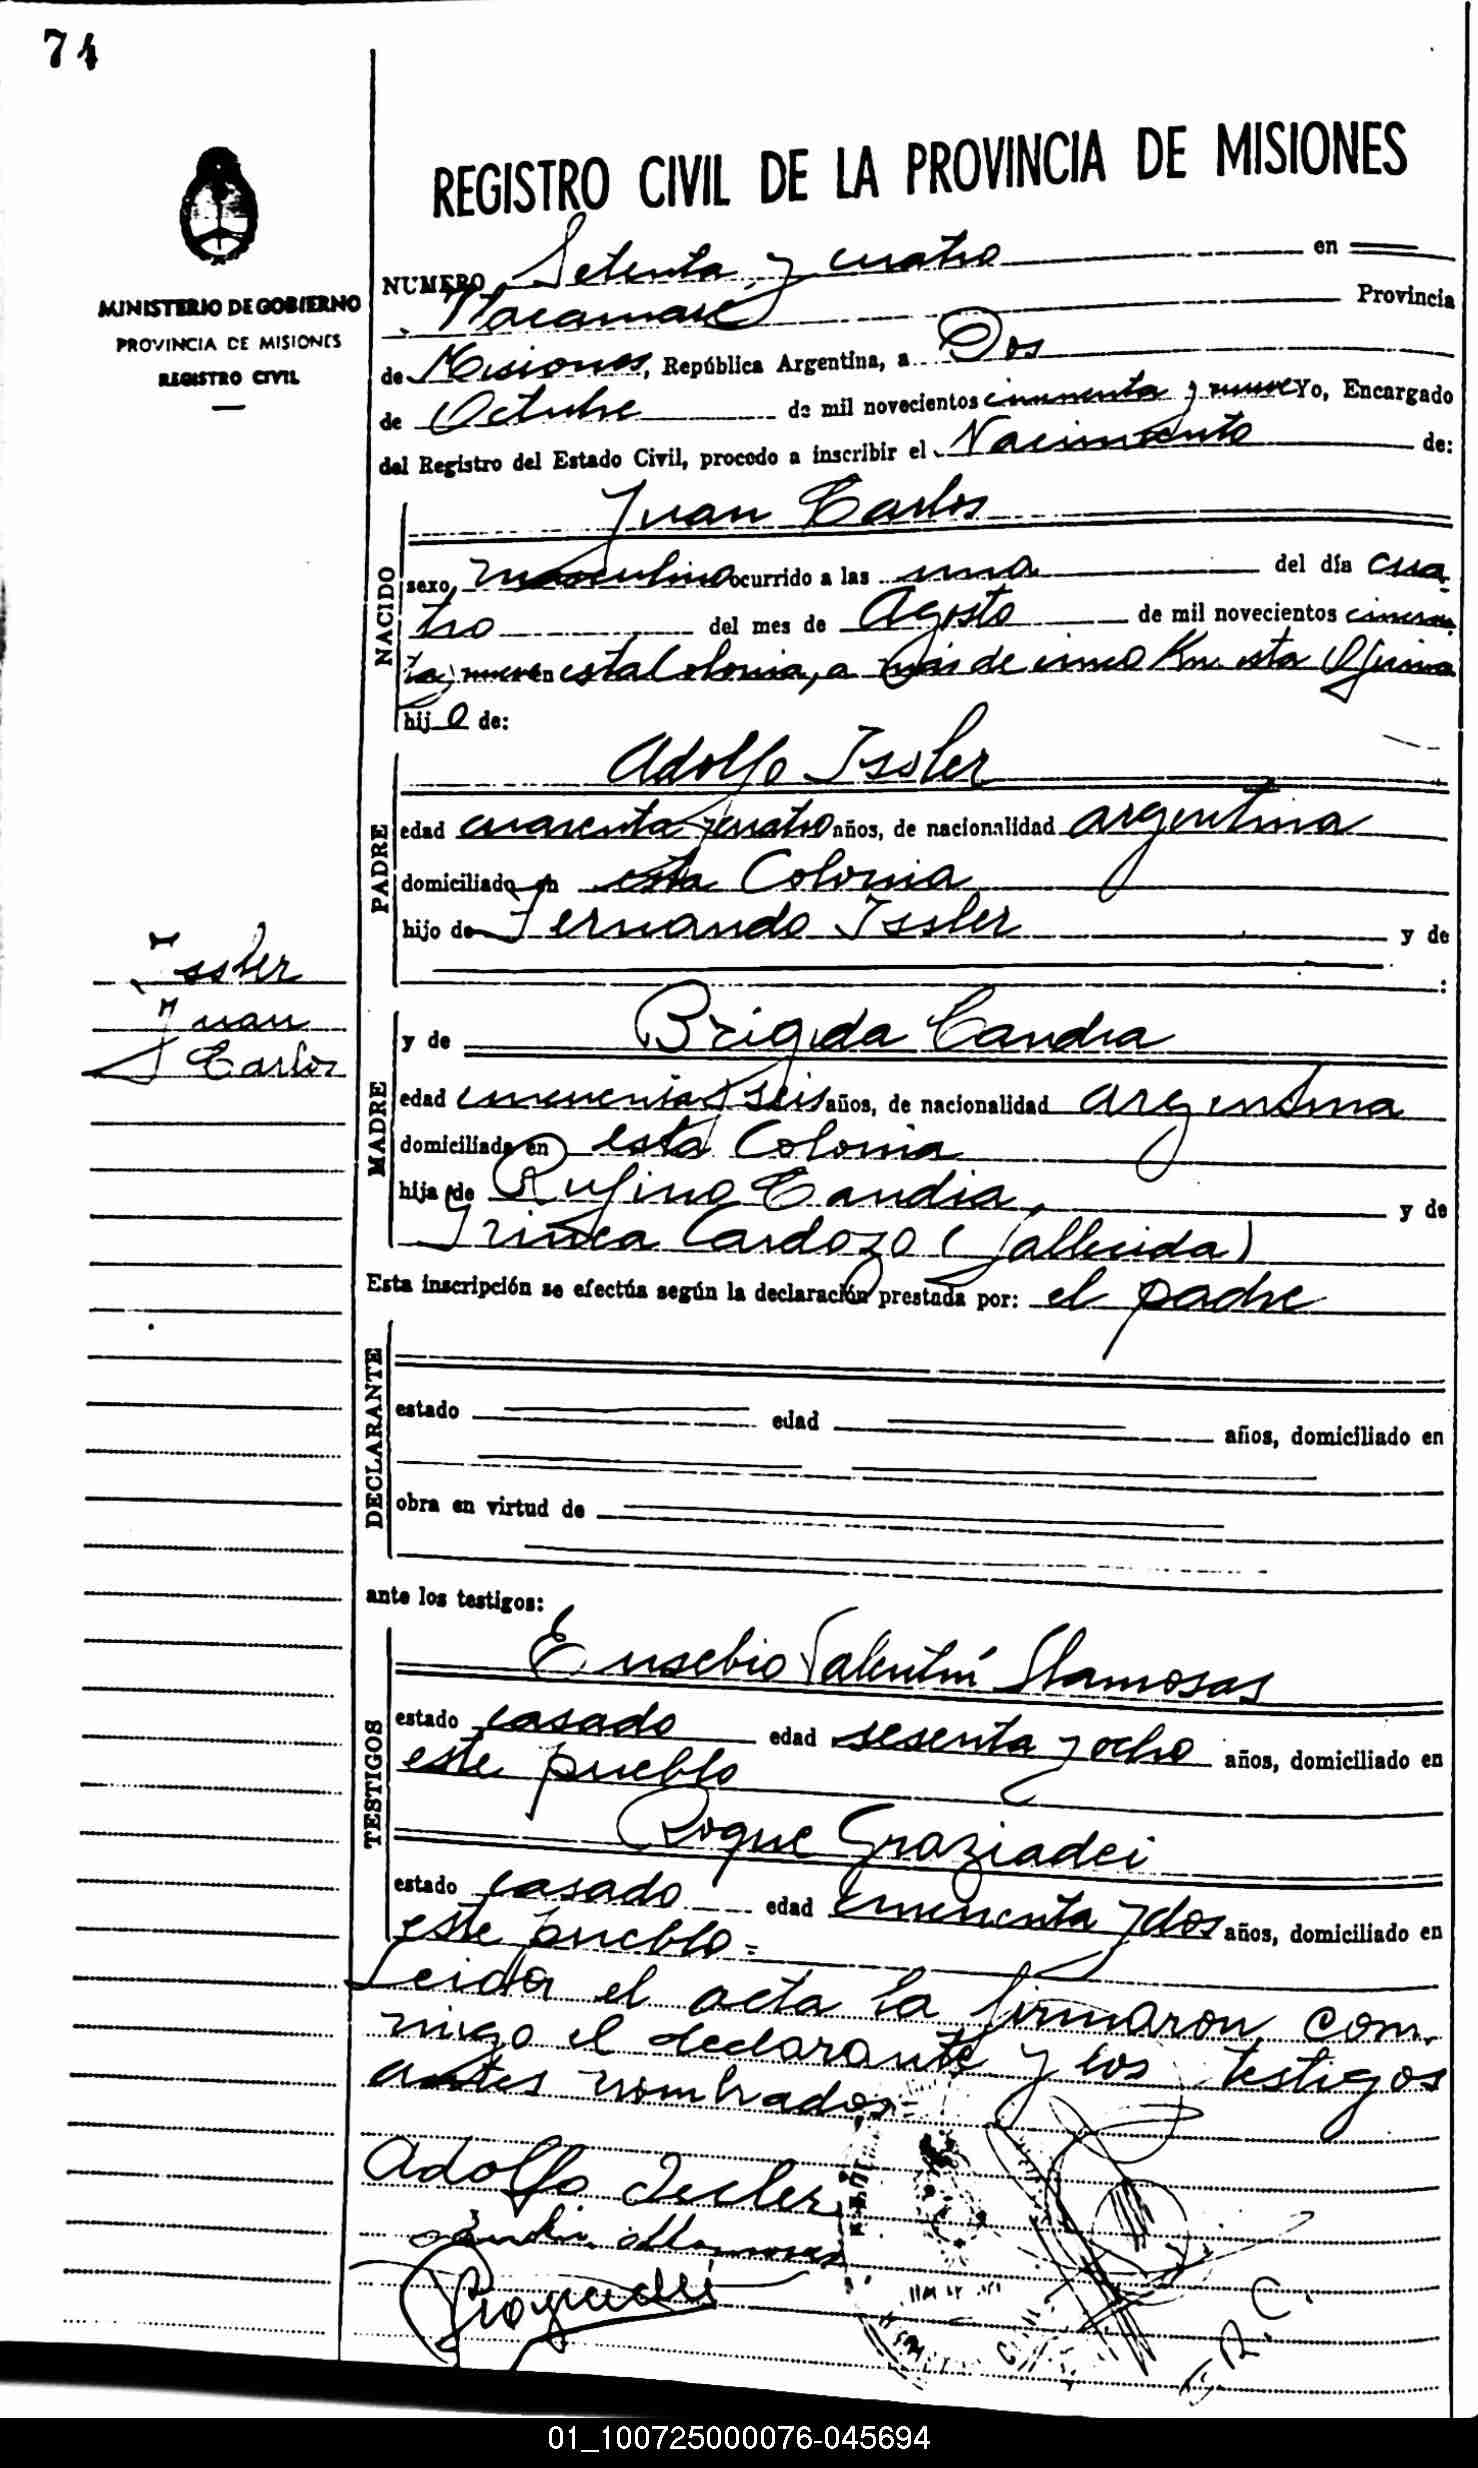 74
REGISTRO CIVIL DE LA PROVINCIA DE MISIONES
MINISTERIO DE GOBIERNO
PROVINCIA DE MISIONES
REGISTRO CIVIL
NUMERO Setenta y cuatro en
Provincia
de Misiones, República Argentina, a Dos
de Octubre de mil novecientos cincuenta y nueve Yo, Encargado
del Registro del Estado Civil, procedo a inscribir el Nacimiento de:
NACIDO
Juan Carlos
sexo masculino ocurrido a las una del día cua
tro del mes de Agosto de mil novecientos cincuen
ta y nueve en esta Colonia, a más de cinco Km. esta Oficina
hijo de:
PADRE
Adolfo Issler
edad cuarenta y cuatro años, de nacionalidad argentina
domiciliado en esta Colonia
hijo de Fernando Issler y de
Issler
Juan
Carlos
MADRE
y de Brígida Candia
edad y seis años, de nacionalidad argentina
domiciliada en esta Colonia
hija de Rufino Candia y de
Cardozo (fallecida)
Esta inscripción se efectúa según la declaración prestada por: el padre
DECLARANTE
estado edad años, domiciliado en
obra en virtud de
ante los testigos:
TESTIGOS
Eusebio Valentín Llamosas
estado casado edad sesenta y ocho años, domiciliado en
este pueblo
Roque Graziadei
estado casado edad cincuenta y dos años, domiciliado en
este pueblo.=
Leida el acta la firmaron con-
migo el declarante y los testigos
antes nombrados.=
Adolfo Iseler
01_100725000076-045694